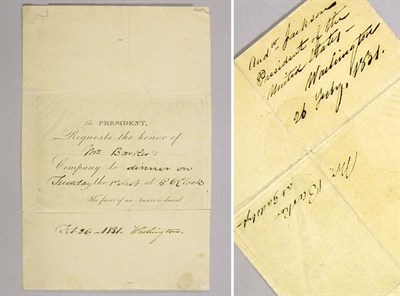 The PRESIDENT,
Requests the honor of
Mr. Barker's
Company to dinner on
Tuesday, the 1st at 5 O'Clock
The favor of an Answer is desired
Feb 26 - 1831. Washington.
And'w Jackson
President of the
United States -
Washington
26 Feby, 1831.
Mr.